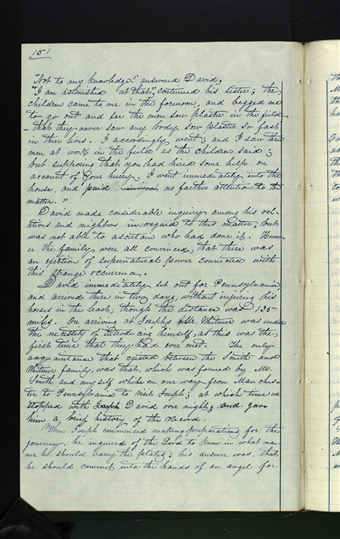 151
"Not to my knowledge." answered David,
"I am astonished at that," continued his sister; "the
children came to me in the forenoon, and begged me
to go out and see the men sow plaster in the field
- that they never saw any body sow plaster so fast
in their lives. I accordingly, went; and I saw three
men at work in the field, as the children said;
but supposing that you had hired some help on
account of your hurry, I went immediately into the
house, and paid no farther attention to the
matter."
David made considerable inquiry among his rel-
atives and neighbors in regard to this matter; but
was not able to ascertain who had done it. How-
er the family, were all convinced, that there was
an exertion of supernatural power connected with
this strange occurrence.
David immediately set out for Pennsylvania
and arrived there in two days, without injuring his
horses in the least, though the distance was 135
miles. On arriving at Josephs Whitmer was under
the necessity of introducing himself, as this was the
first time that they had ever met. The only
acquaintance that existed between the Smith and
Whitmer family, was that, which was formed by Mr.
Smith and myself while on our way from Manches
ter to Pennsylvania to visit Joseph; at which time we
stopped with David over night, and gave
him a brief history of the record.
When Joseph commenced making preparations for the
journey, he inquired of the Lord to know in what man
ner he should carry the plates; his answer was, that
he should commit into the hands of an angel for